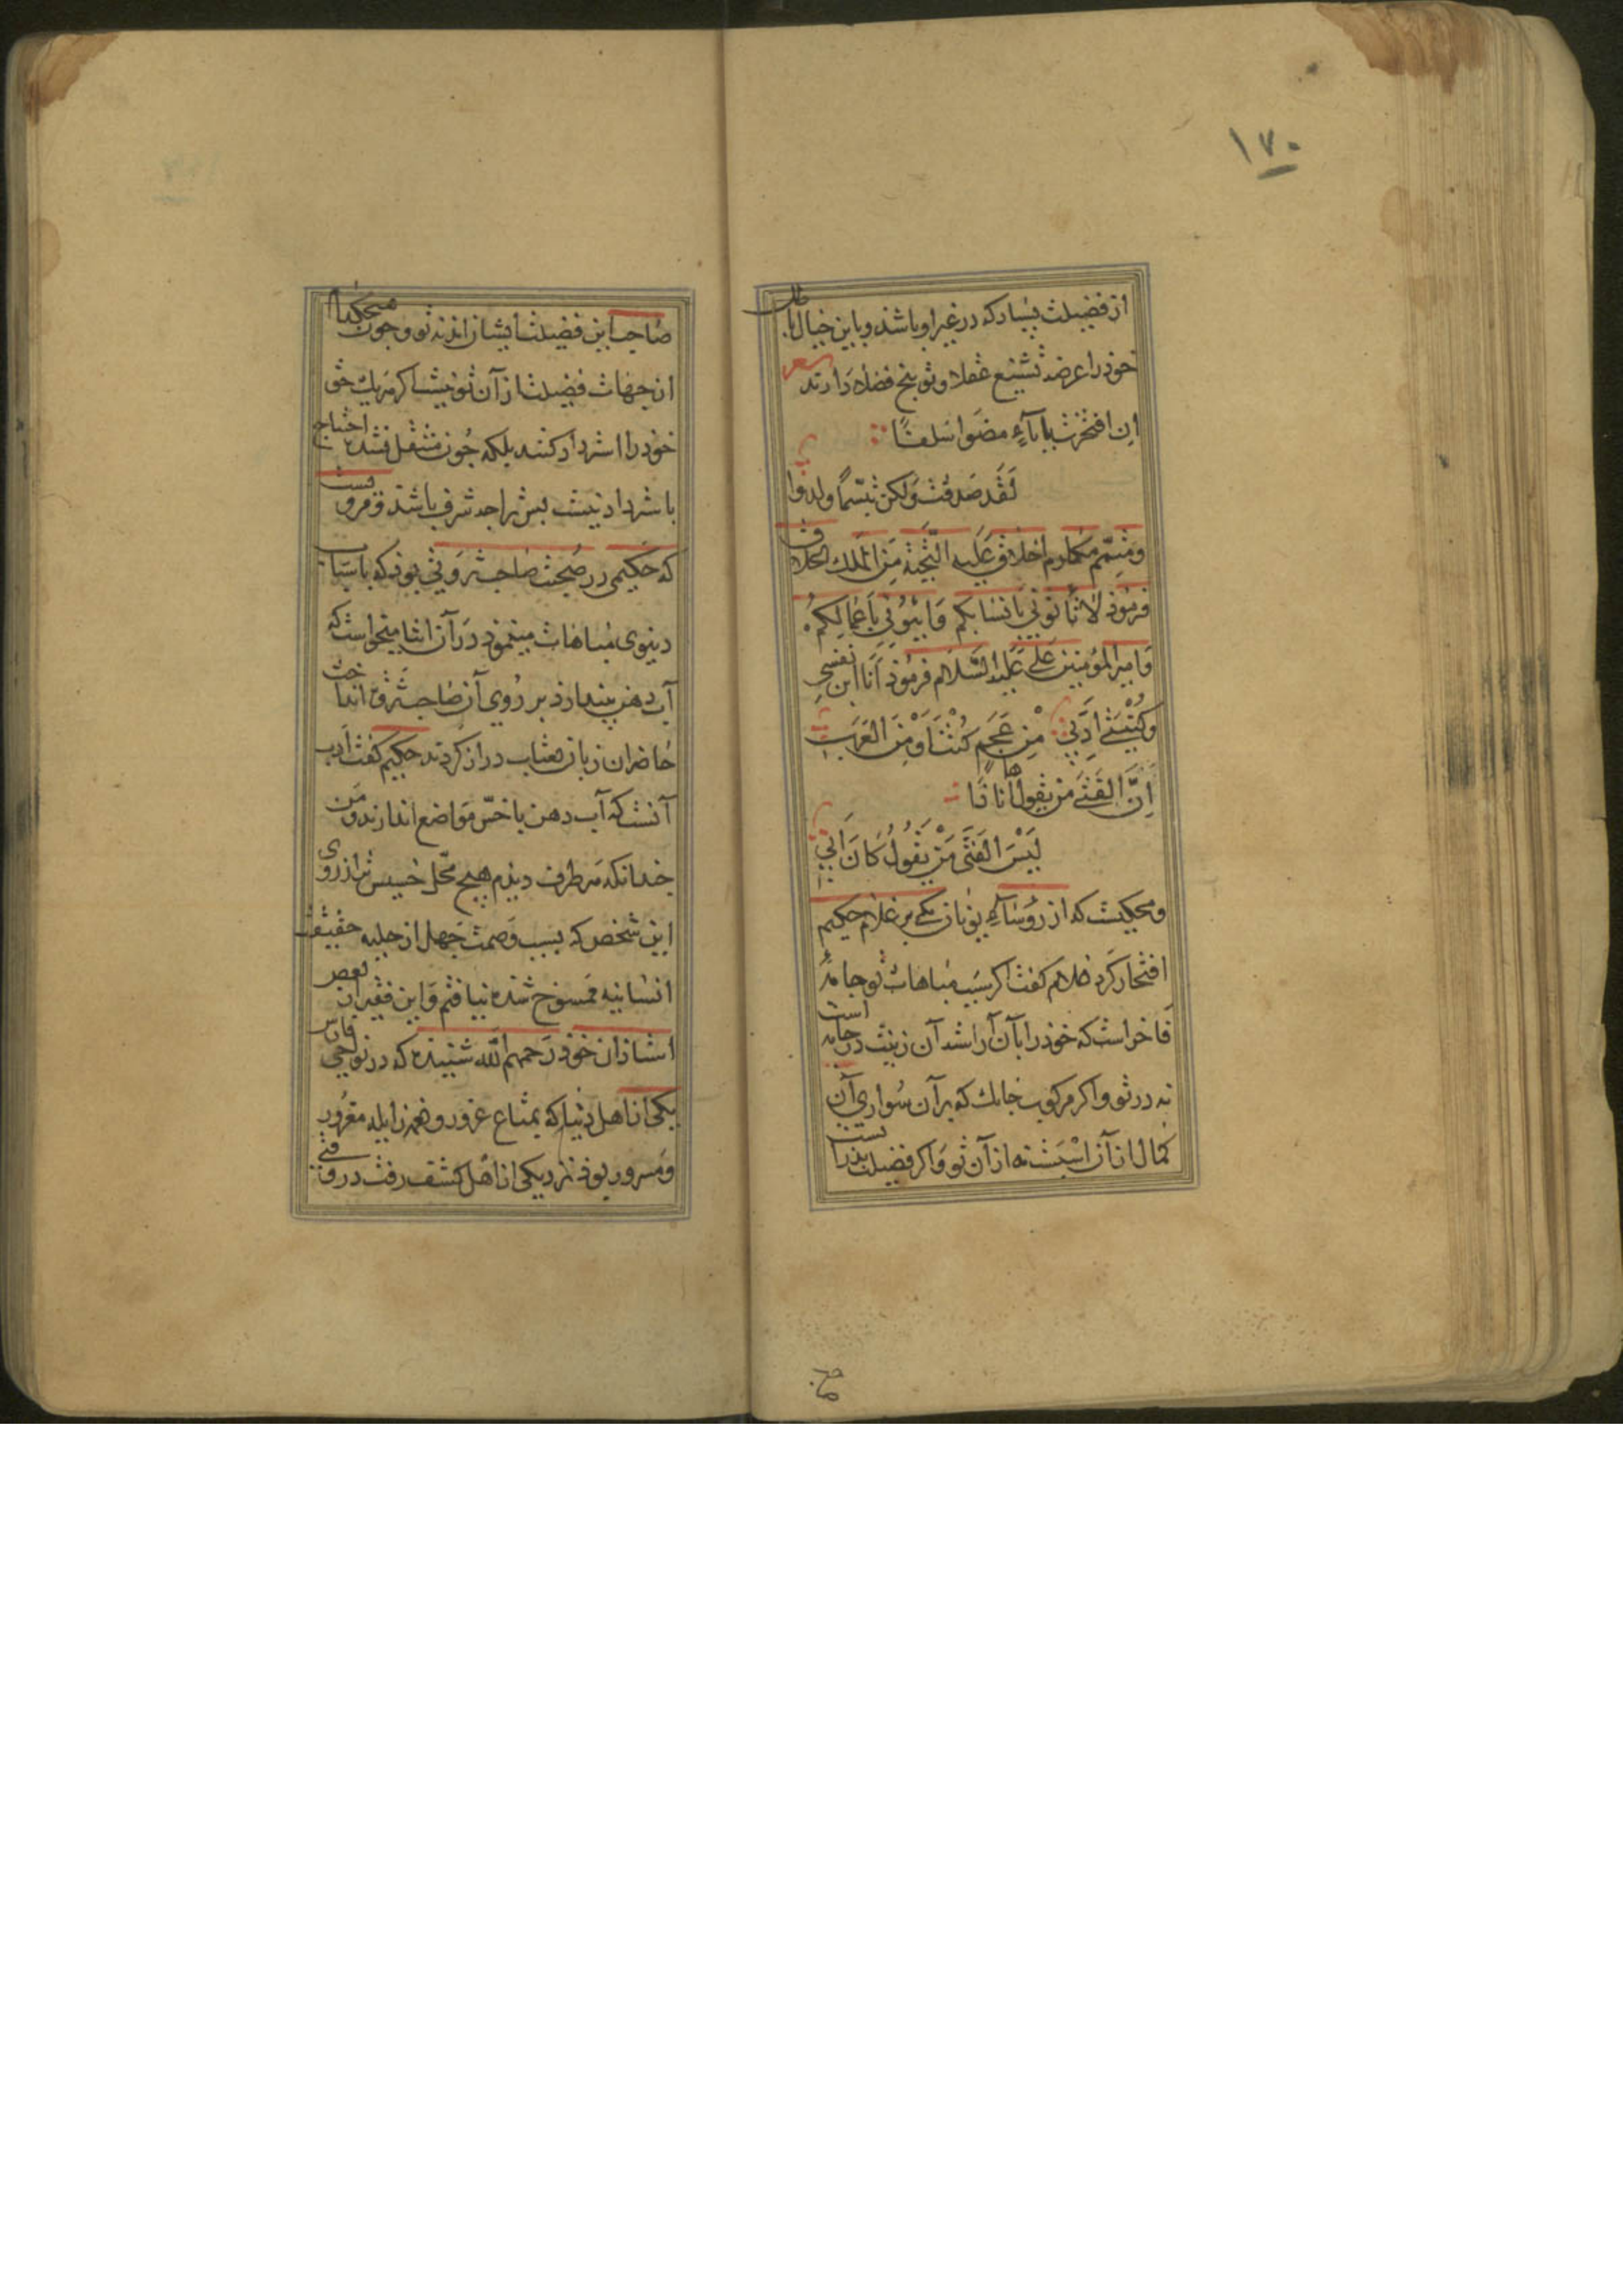 ١٧٠
از فضیلت پندارد که در غیر او باشد و باین خیال باطل
خود را عرضه تشنیع عقلا و توبیخ فضلا دارند شعر
ان افتخرت بآباء مضوا سلفا
لقد صدقت ولکن بئسما ولدوا
و متمم مکارم اخلاق علیه التحیة من الملک الخلاق
فرموذ لا تأتونی بانسابکم وَأتونی باعمالکم
وَامیر المؤمنین علی علیه السّلام فرموذ انا ابن نفسی
وکنیتی ادبی من عجم کنت اَو من العرب
اِنّ الفتی من یقول ها انا ذا
لَیْسَ الفَتی مَنْ یَقُولُ کَانَ اَبی
و محکیست که از رؤساء یونان یکی بر غلام حکیم
افتخار کرد غلام گفت اکر سبب مباهات تو جامهٔ
فاخر است که خوذ را بآن آراسته آن زینت در جامه است
نه در تو و اکر مرکوب جابک که بر آن سواری آن
کمال از آن اسبست نه از آن تو و اکر فضیلت پدرانست
صاحب این فضیلت ایشان اند نه تو و چون هیچکدام
از جهات فضیلت از آن تو نیست اکر هریک حق
خوذ را استرداد کنند بلکه جون منتقل نشده احتیاج
باسترداد نیست پس ترا جه شرف باشد و مرویست
که حکیمی در صحبت صاحب ثروتی بود که باسباب
دنیوی مباهات مینمود در آن اثنا میخواست که
آب دهن بیندازد بر روی آن صاحب ثروت انداخت
حاضران زبان بعتاب دراز کردند حکیم کفت ادب
آنست که آب دهن باخسّ مواضع اندازند و من
جندانکه هر طرف دیدم هیچ محل خسیس تر از روی
این شخص که بسبب وصمت جهل از حلیه حقیقت
انسانیه ممسوخ شده نیافتم وَ این فقیر از بعض
استاذان خوذ رحمهم الله شنیده که در نواحی فارس
یکی از اهل دنیا که بمتاع غرور و ابله مغرور
و مسرور بود نزدیکی از اهل کشف رفت در وقتی